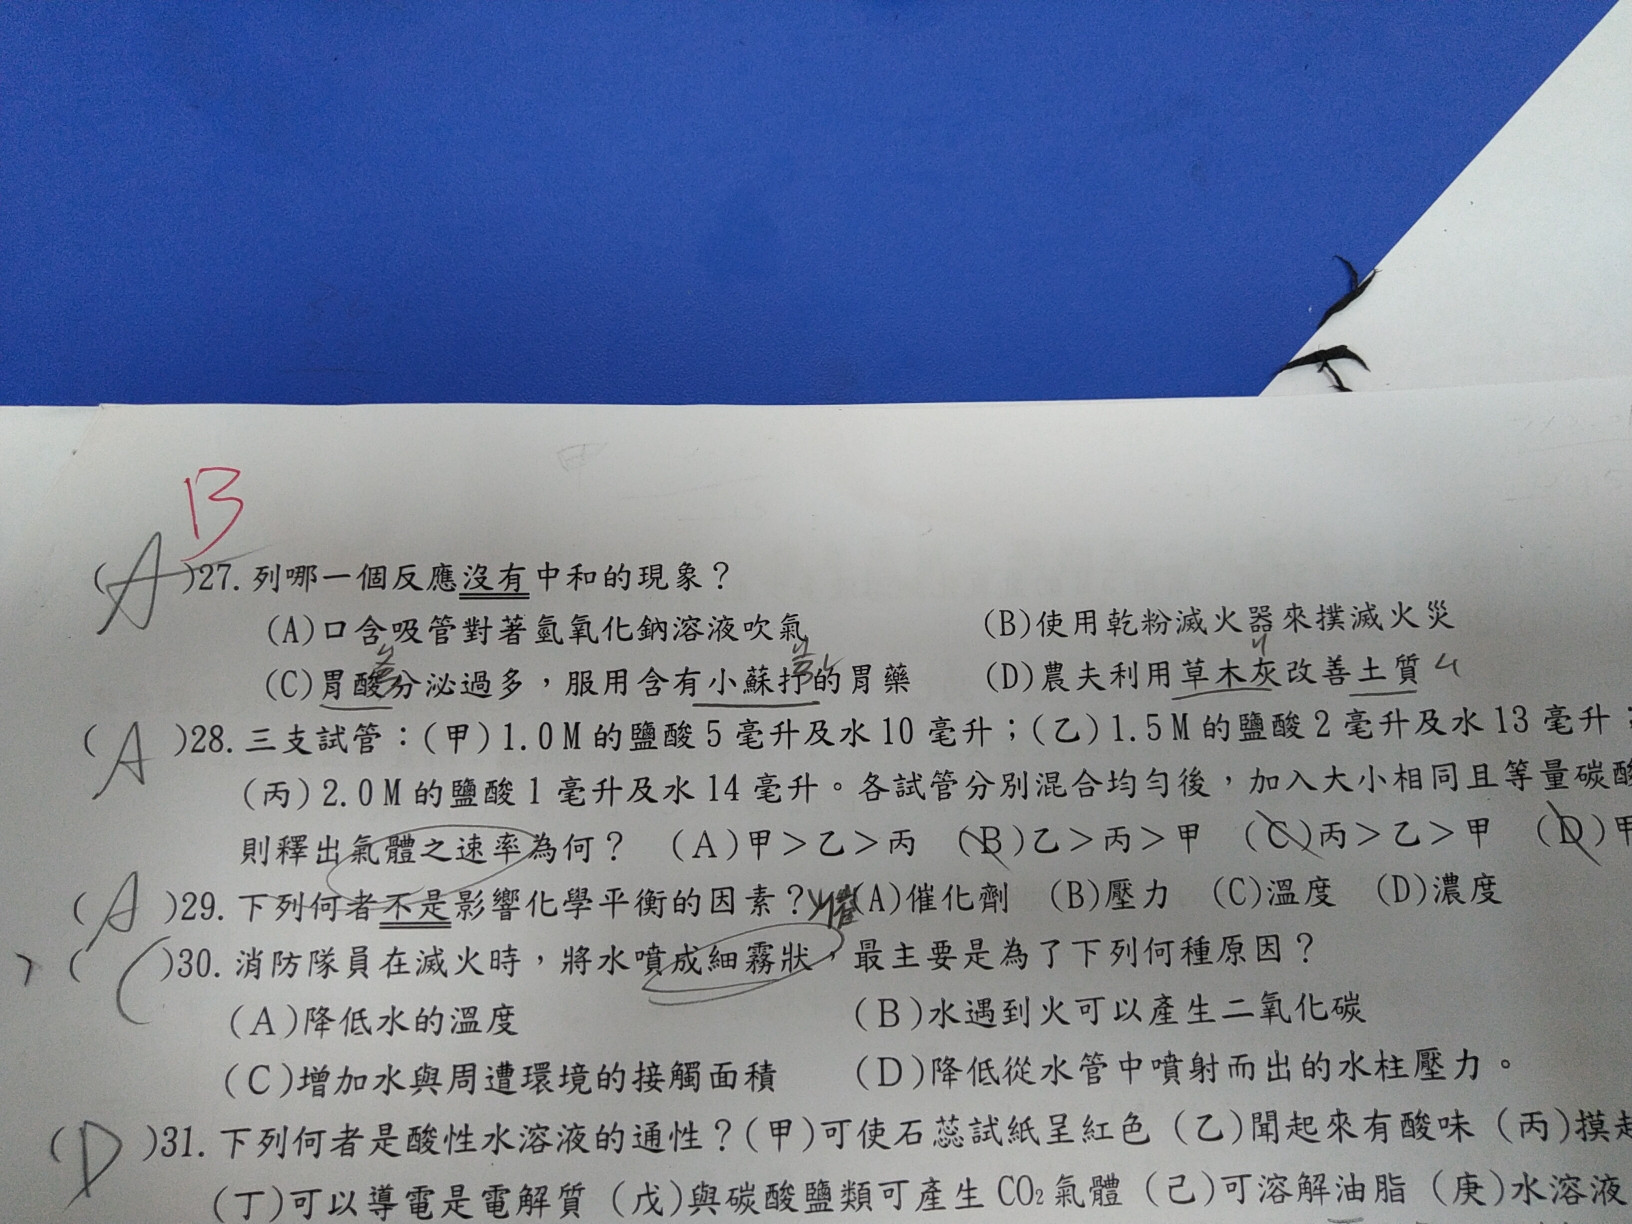 B
(A)27.列哪一個反應沒有中和的現象？
(A)口含吸管對著氫氧化鈉溶液吹氣 (B)使用乾粉滅火器來撲滅火災
(C)胃酸分泌過多，服用含有小蘇打的胃藥 (D)農夫利用草木灰改善土質
(A)28.三支試管：(甲)1.0M的鹽酸5毫升及水10毫升；(乙)1.5M的鹽酸2毫升及水13毫升；
(丙)2.0M的鹽酸1毫升及水14毫升。各試管分別混合均勻後，加入大小相同且等量碳酸
則釋出氣體之速率為何？ (A)甲＞乙＞丙 (B)乙＞丙＞甲 (C)丙＞乙＞甲 (D)甲
(A)29.下列何者不是影響化學平衡的因素？(A)催化劑 (B)壓力 (C)溫度 (D)濃度
(C)30.消防隊員在滅火時，將水噴成細霧狀，最主要是為了下列何種原因？
(A)降低水的溫度 (B)水遇到火可以產生二氧化碳
(C)增加水與周遭環境的接觸面積 (D)降低從水管中噴射而出的水柱壓力。
(D)31.下列何者是酸性水溶液的通性？(甲)可使石蕊試紙呈紅色 (乙)聞起來有酸味 (丙)摸起
(丁)可以導電是電解質 (戊)與碳酸鹽類可產生CO₂氣體 (己)可溶解油脂 (庚)水溶液